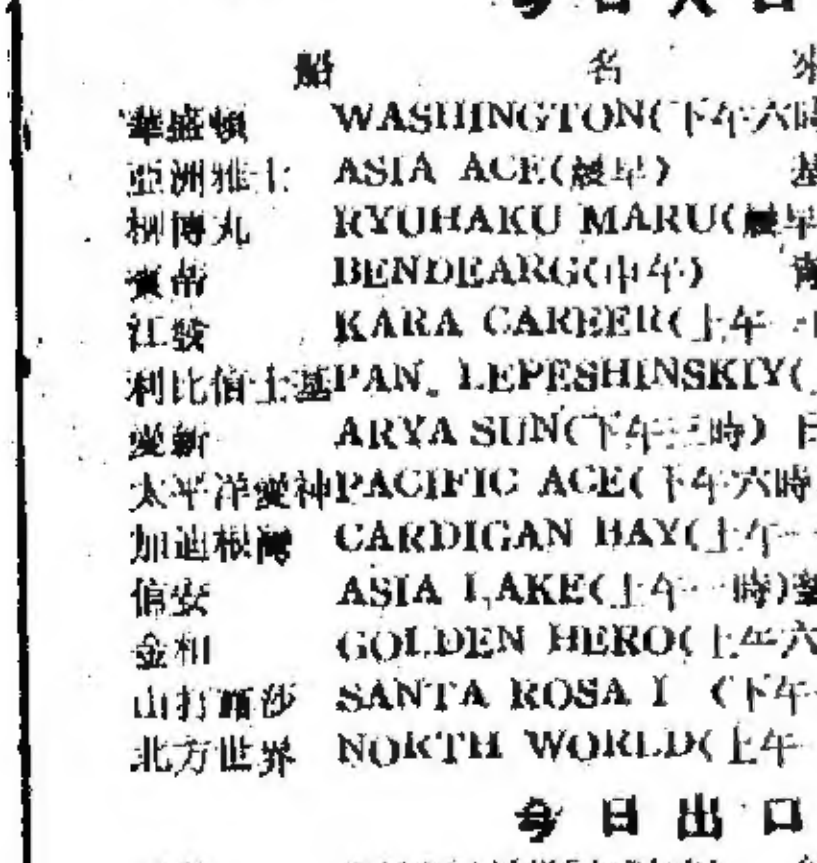 船 名 來
華盛頓 WASHINGTON(下午六時
亞洲雅士 ASIA ACE(晨早) 基
柳博丸 RYUHAKU MARU(晨早
BENDEARG(中午)
江發 KARA CAREER(上午
利比信士基 PAN. LEPESHINSKIY(
愛新 ARYA SUN(下午三時) 日
太平洋愛神 PACIFIC ACE(下午六時
加迪根灣 CARDIGAN BAY(上午
信安 ASIA LAKE(上午一時)
金和 GOLDEN HERO(上午六
山打 沙 SANTA ROSA I (下午
北方世界 NORTH WORLD(上午
今日出口